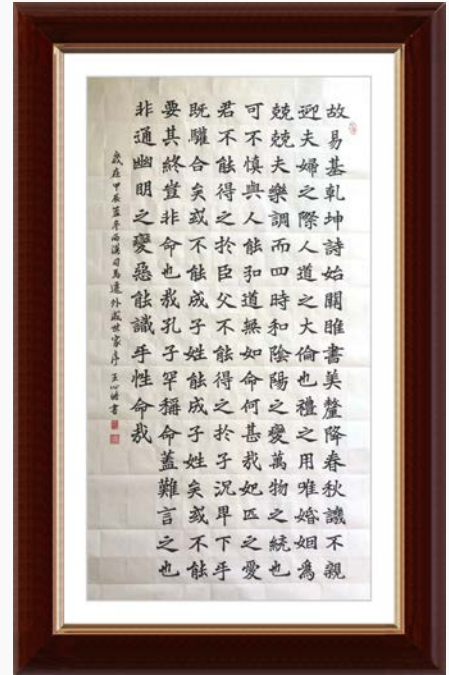 故易基乾坤詩始關雎書美釐降春秋譏不親
迎夫婦之際人道之大倫也禮之用唯婚姻爲
兢兢夫樂調而四時和陰陽之變萬物之統也
可不慎與人能弘道無如命何甚哉妃匹之愛
君不能得之於臣父不能得之於子況卑下乎
既驩合矣或不能成子姓能成子姓矣或不能
要其終豈非命也哉孔子罕稱命蓋難言之也
非通幽明之變惡能識乎性命哉
歲在甲辰孟冬西漢司馬遷外戚世家序 王心書